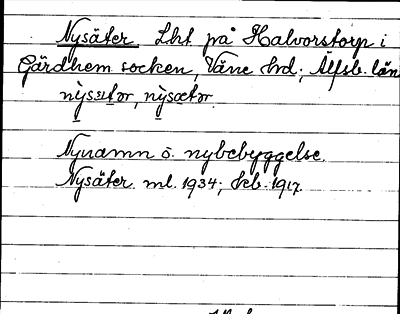 Nysäter Lht på Halvorstorp i
Gärdhem socken, Väne hd; Älfsb. län
Nynamn o. nybebyggelse.
Nysäter. ml. 1934; kb. 1917.